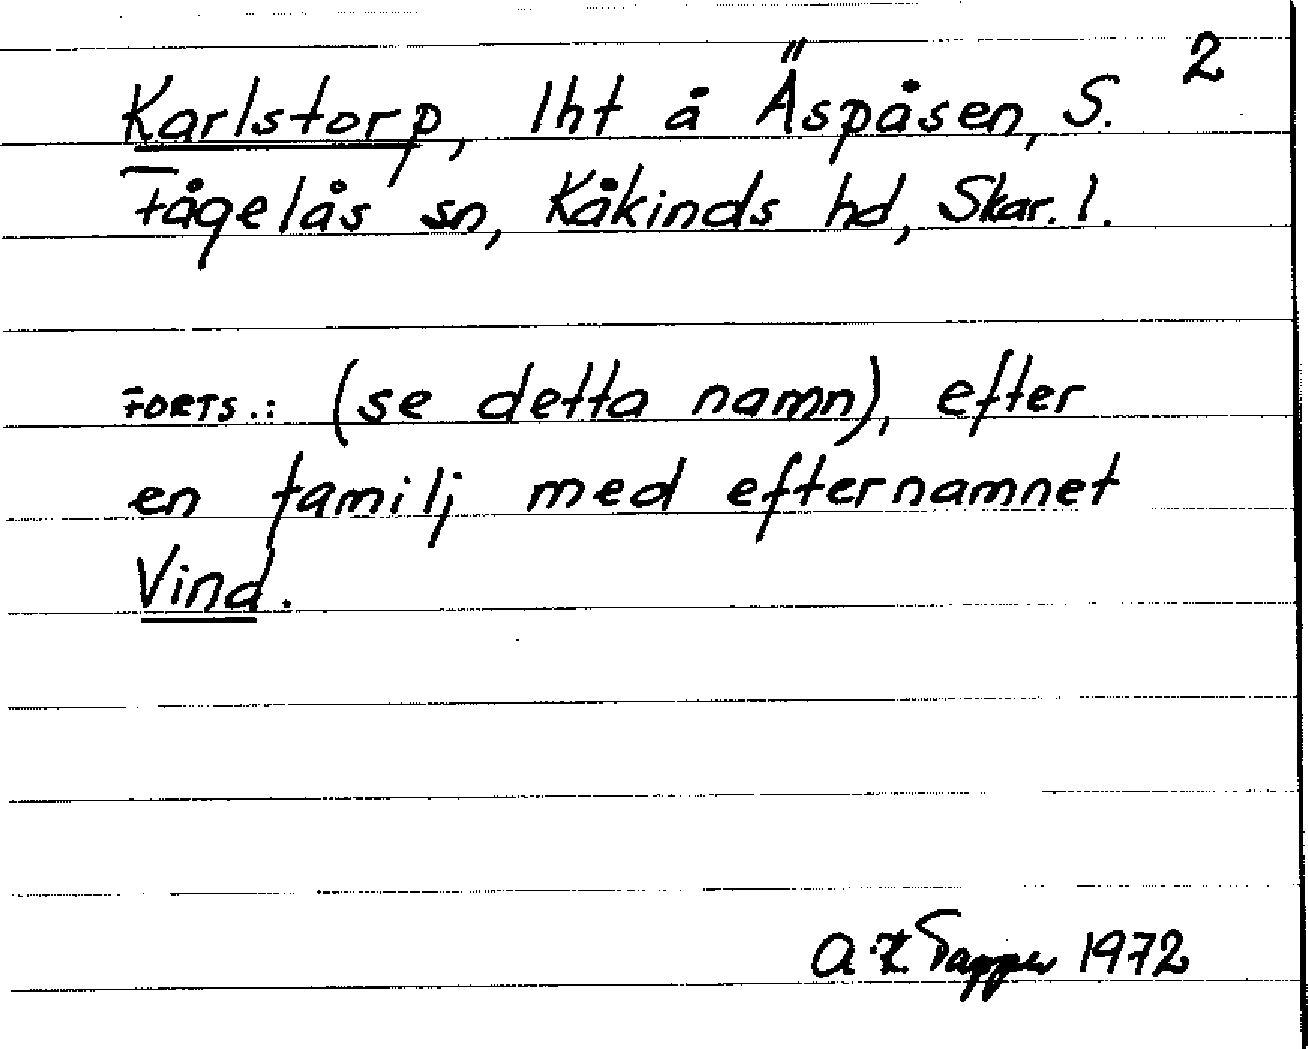 2
Karlstorp, lht å Äspåsen, S.
Fågelås sn, Kåkinds hd, Skar. l.
FORTS.: (se detta namn), efter
en familj med efternamnet
Vind.
A. K. Tapper 1972